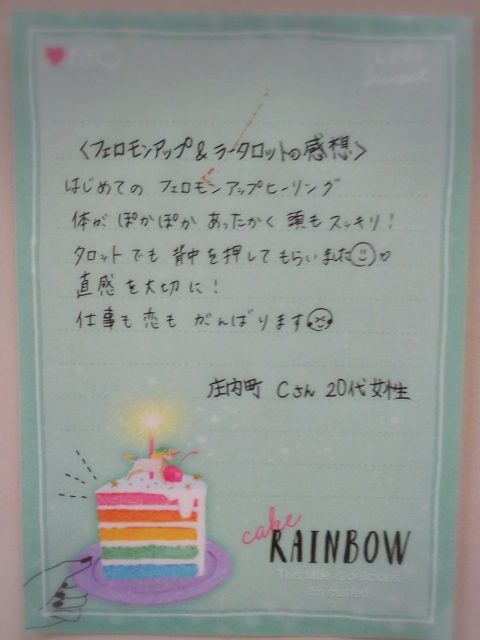 <フェロモンアップ&ラータロットの感想>
はじめての フェロモンアップヒーリング
体が ぽかぽか あったかく 頭もスッキリ!
タロットでも 背中を押してもらいました
直感を大切に!
仕事も恋も がんばります
庄内町 Cさん 20代女性
cake
RAINBOW
This time is delicious
I'm stuffed